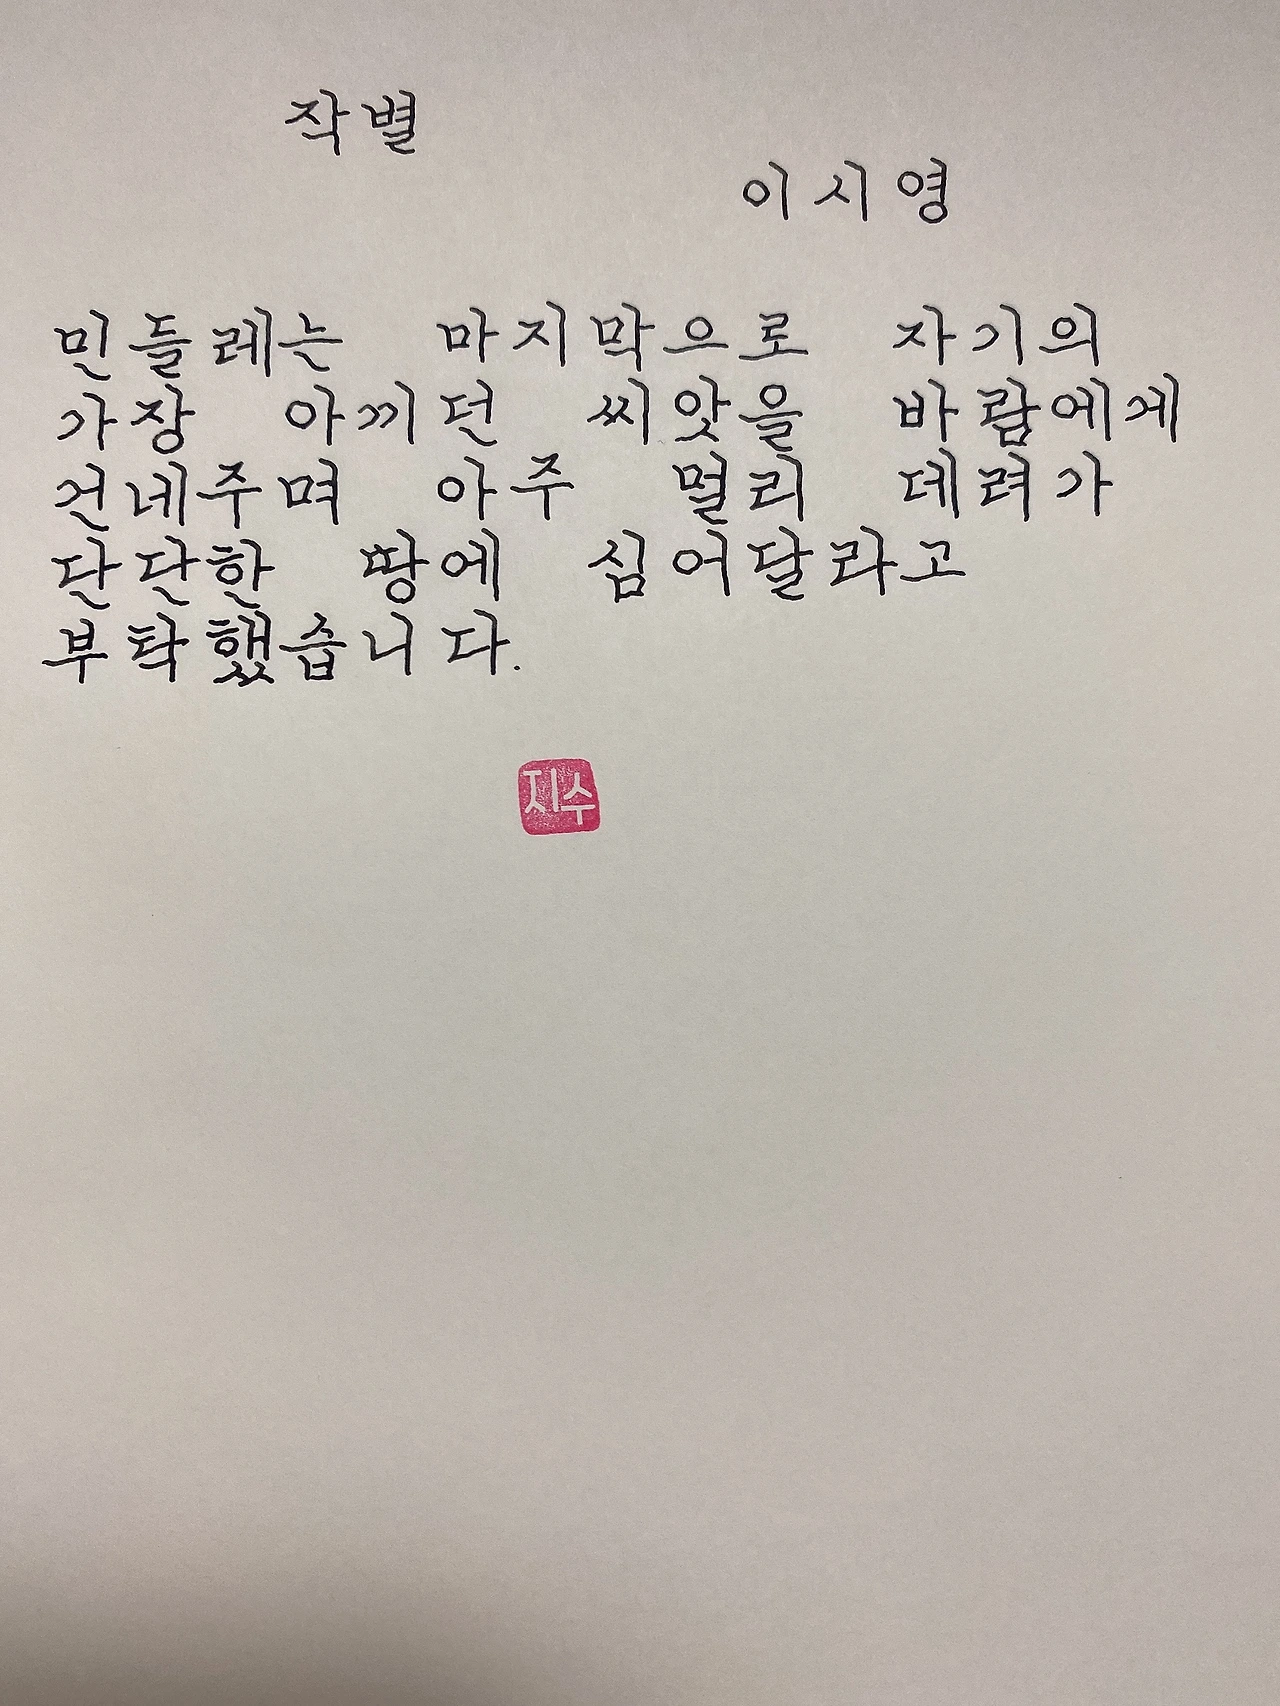 작별
이시영
민들레는 마지막으로 자기의
가장 아끼던 씨앗을 바람에게
건네주며 아주 멀리 데려가
단단한 땅에 심어달라고
부탁했습니다.
지수